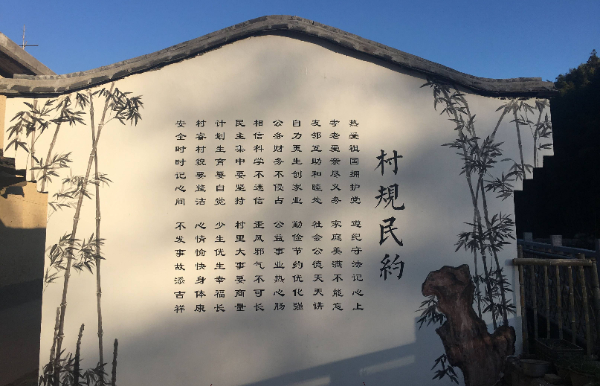 村規民約
热爱祖国拥护党 遵纪守法记心上
孝老爱亲尽义务 家庭美满不能忘
友邻互助和睦处 社会公德天天讲
自力更生创家业 勤俭节约优化强
公务财务不侵占 公益事业热心肠
相信科学不迷信 歪风邪气不可长
民主集中要坚持 村里大事要商量
计划生育要自觉 少生优生幸福长
村容村貌要整洁 心情愉快身体康
安全时时记心间 不发事故添吉祥